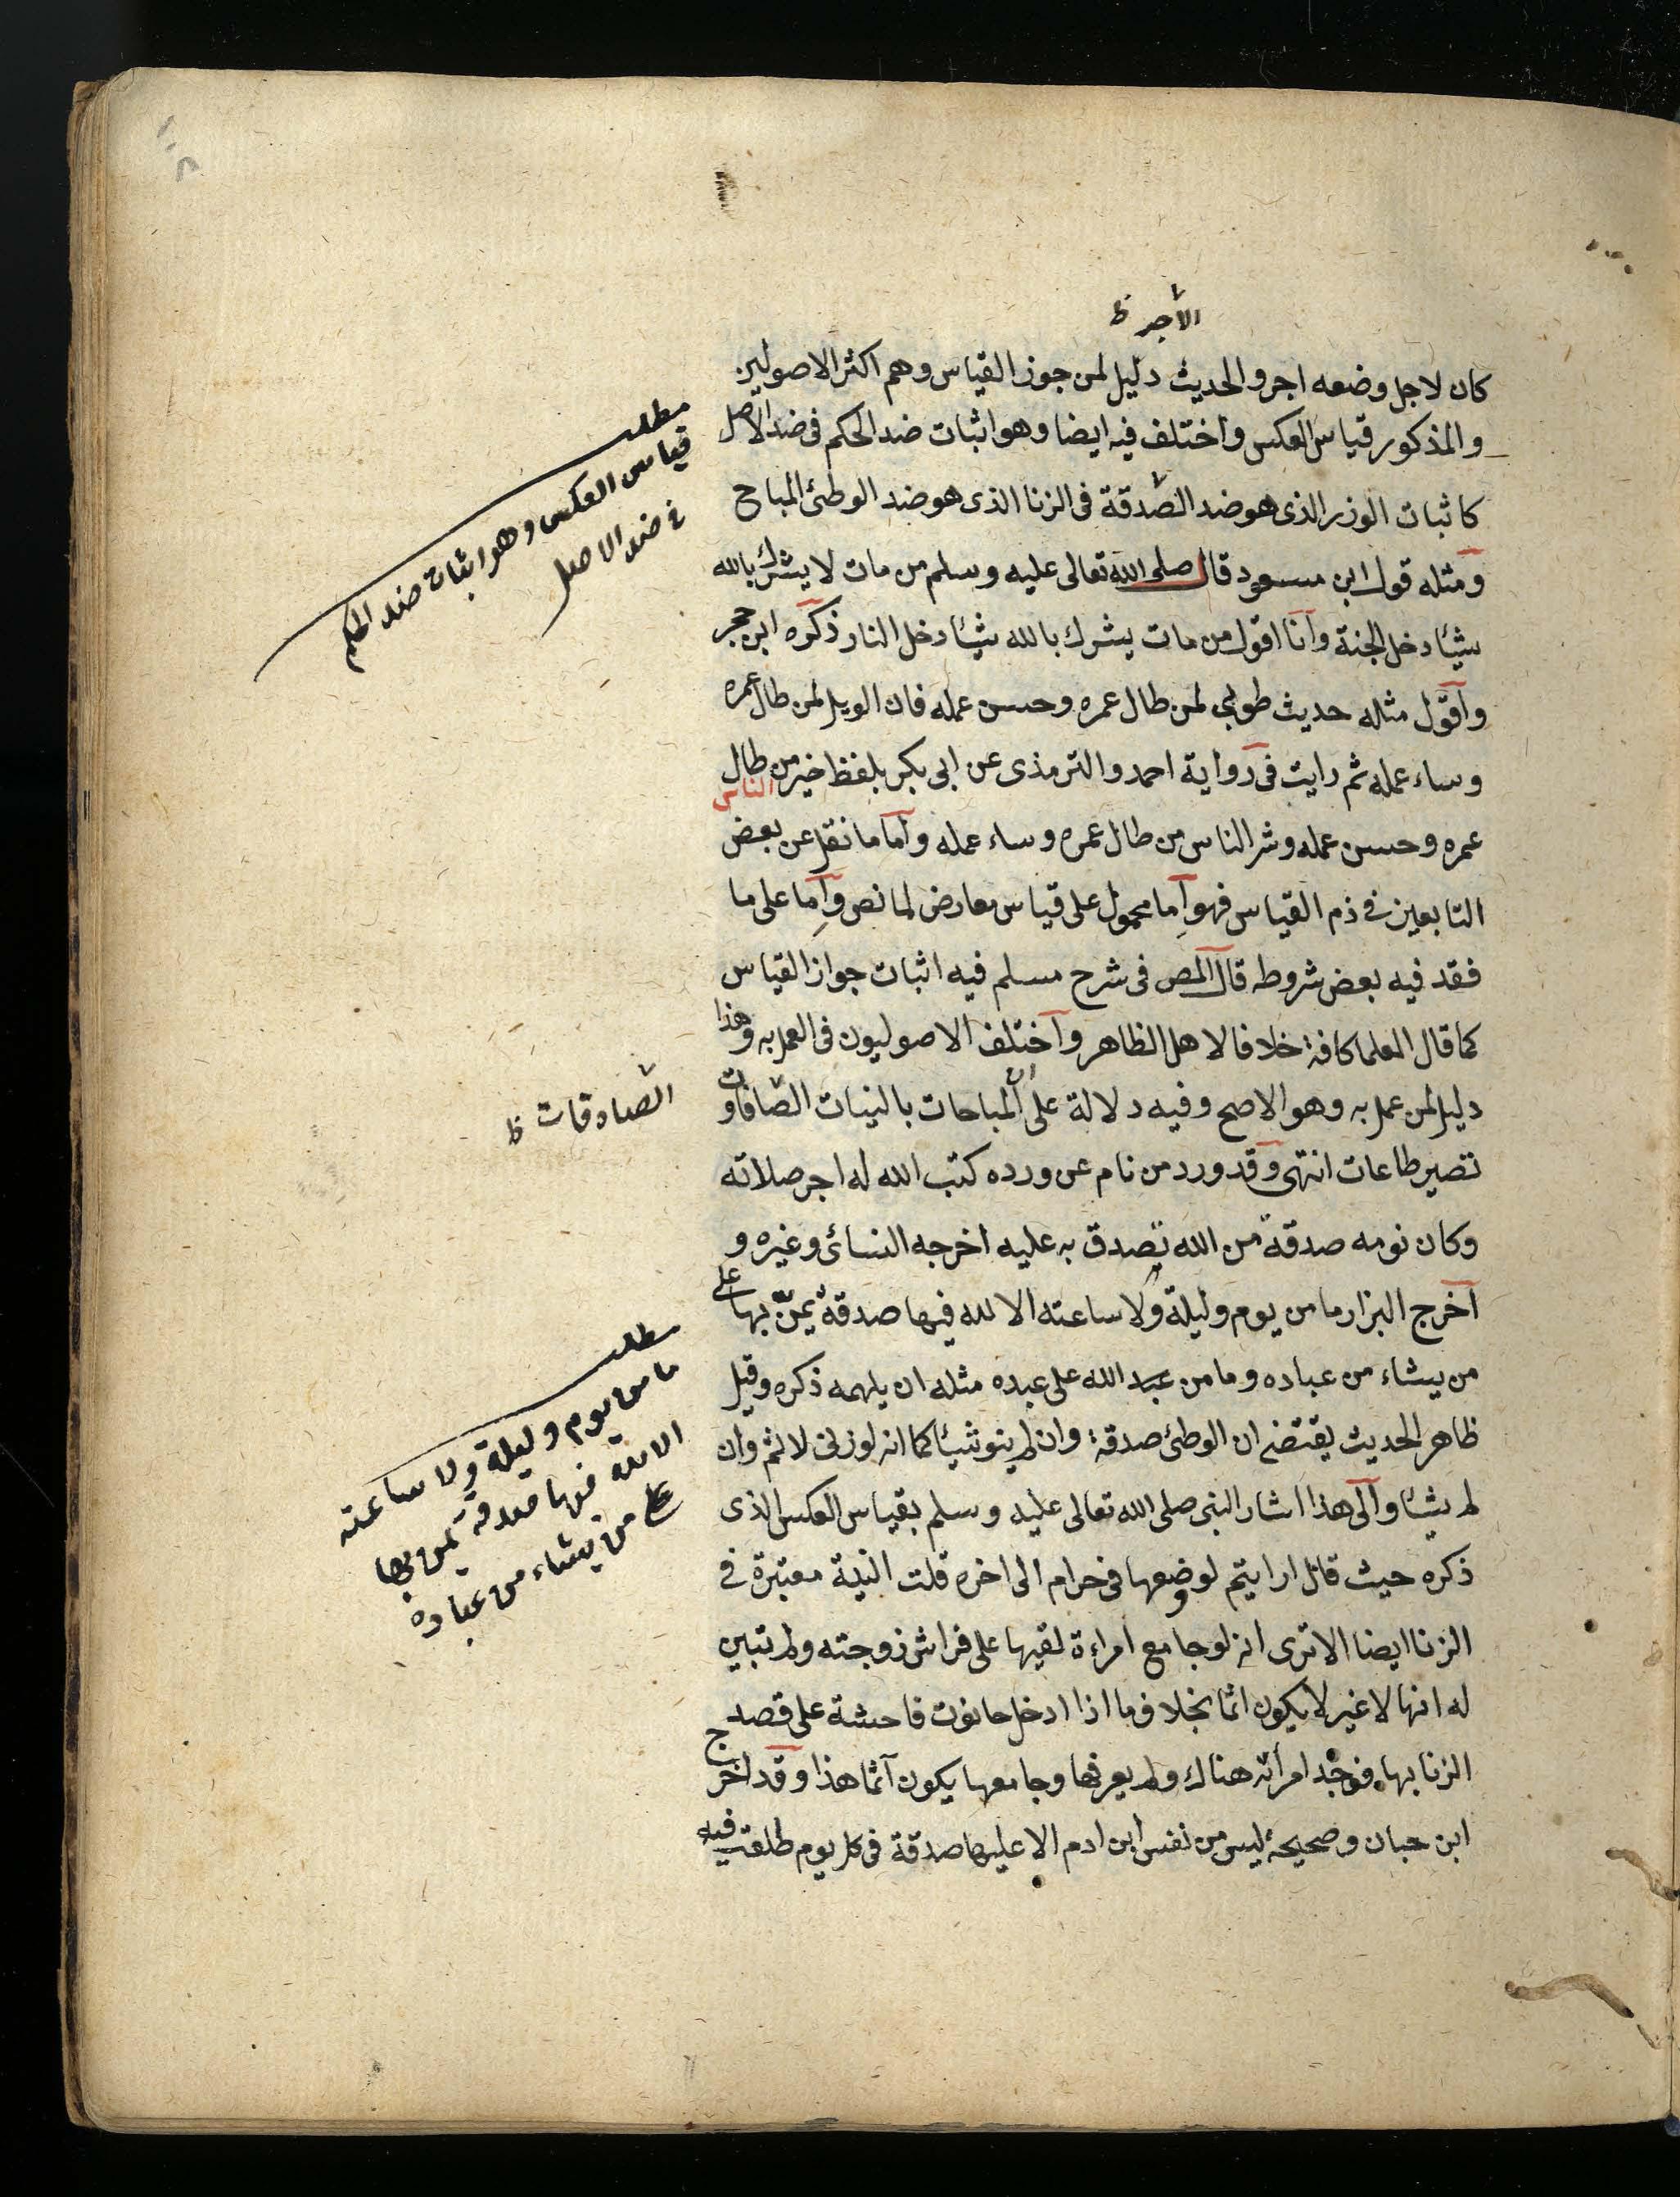 الأجر ظ
كان لاجل وضعه اجر والحديث دليل لمن جوز القياس وهم اكثر الاصولين
والمذكور قياس العكس واختلف فيه ايضا وهو اثبات ضد الحكم فى ضد الاصل
كاثبات الوزر الذى هو ضد الصدقة فى الزنا الذى هو ضد الوطئ المباح
ومثله قول ابن مسعود قال صلى الله تعالى عليه وسلم من مات لا يشرك بالله
شيئا دخل الجنة وانا اقول من مات يشرك بالله شيئا دخل النار ذكره ابن حجر
واقول مثله حديث طوبى لمن طال عمره وحسن عمله فان الويل لمن طال عمره
وساء عمله ثم رايت فى رواية احمد والترمذى عن ابى بكر بلفظ خير الناس من طال
عمره وحسن عمله وشر الناس من طال عمره وساء عمله واما ما نقل عن بعض
التابعين فى ذم القياس فهو اما محمول على قياس معارض لما نص واما على ما
فقد فيه بعض شروطه قال المص فى شرح مسلم فيه اثبات جواز القياس
كما قال العلما كافة خلافا لاهل الظاهر واختلف الاصوليون فى العمل به وهذا
دليل لمن عمل به وهو الاصح وفيه دلالة على ان المباحات بالنيات الصافات و
تصير طاعات انتهى وقد ورد من نام عن ورده كتب الله له اجر صلاته
وكان نومه صدقة من الله تصدق به عليه اخرجه النسائى وغيره و
اخرج البزار ما من يوم وليلة ولا ساعته الا لله فيها صدقة يمن بها على
من يشاء من عباده وما من عبد الله على عبده مثله ان يلهمه ذكره وقيل
ظاهر الحديث يقتضى ان الوطئ صدقة وان لم ينو شيئا كما انه لو زنى لاثم وان
لم شيئا والى هذا اشار النبى صلى الله تعالى عليه وسلم بقياس العكس الذى
ذكره حيث قال ارايتم لو وضعها فى حرام الى اخره قلت النية معتبرة فى
الزنا ايضا الا ترى انه لو جامع امراءة لقيها على فراش زوجته ولم تبين
له انها لا غير لا يكون اثما بخلاف ما اذا ادخل حانوت فاحشة على قصد
الزنا بها فوجد امرأته هناك ولم يعرفها وجامعها يكون آثما هذا وقد اخرج
ابن حبان وصحيحه ليس من نفس ابن ادم الا عليها صدقة فى كل يوم طلعت فيه
مطلب
قياس العكس وهو اثبات ضد الحكم
فى ضد الاصل
الصادقات ظ
مطلب
ما من يوم وليلة ولا ساعته
الا لله فيها صدقة يمن بها
على من يشاء من عباده